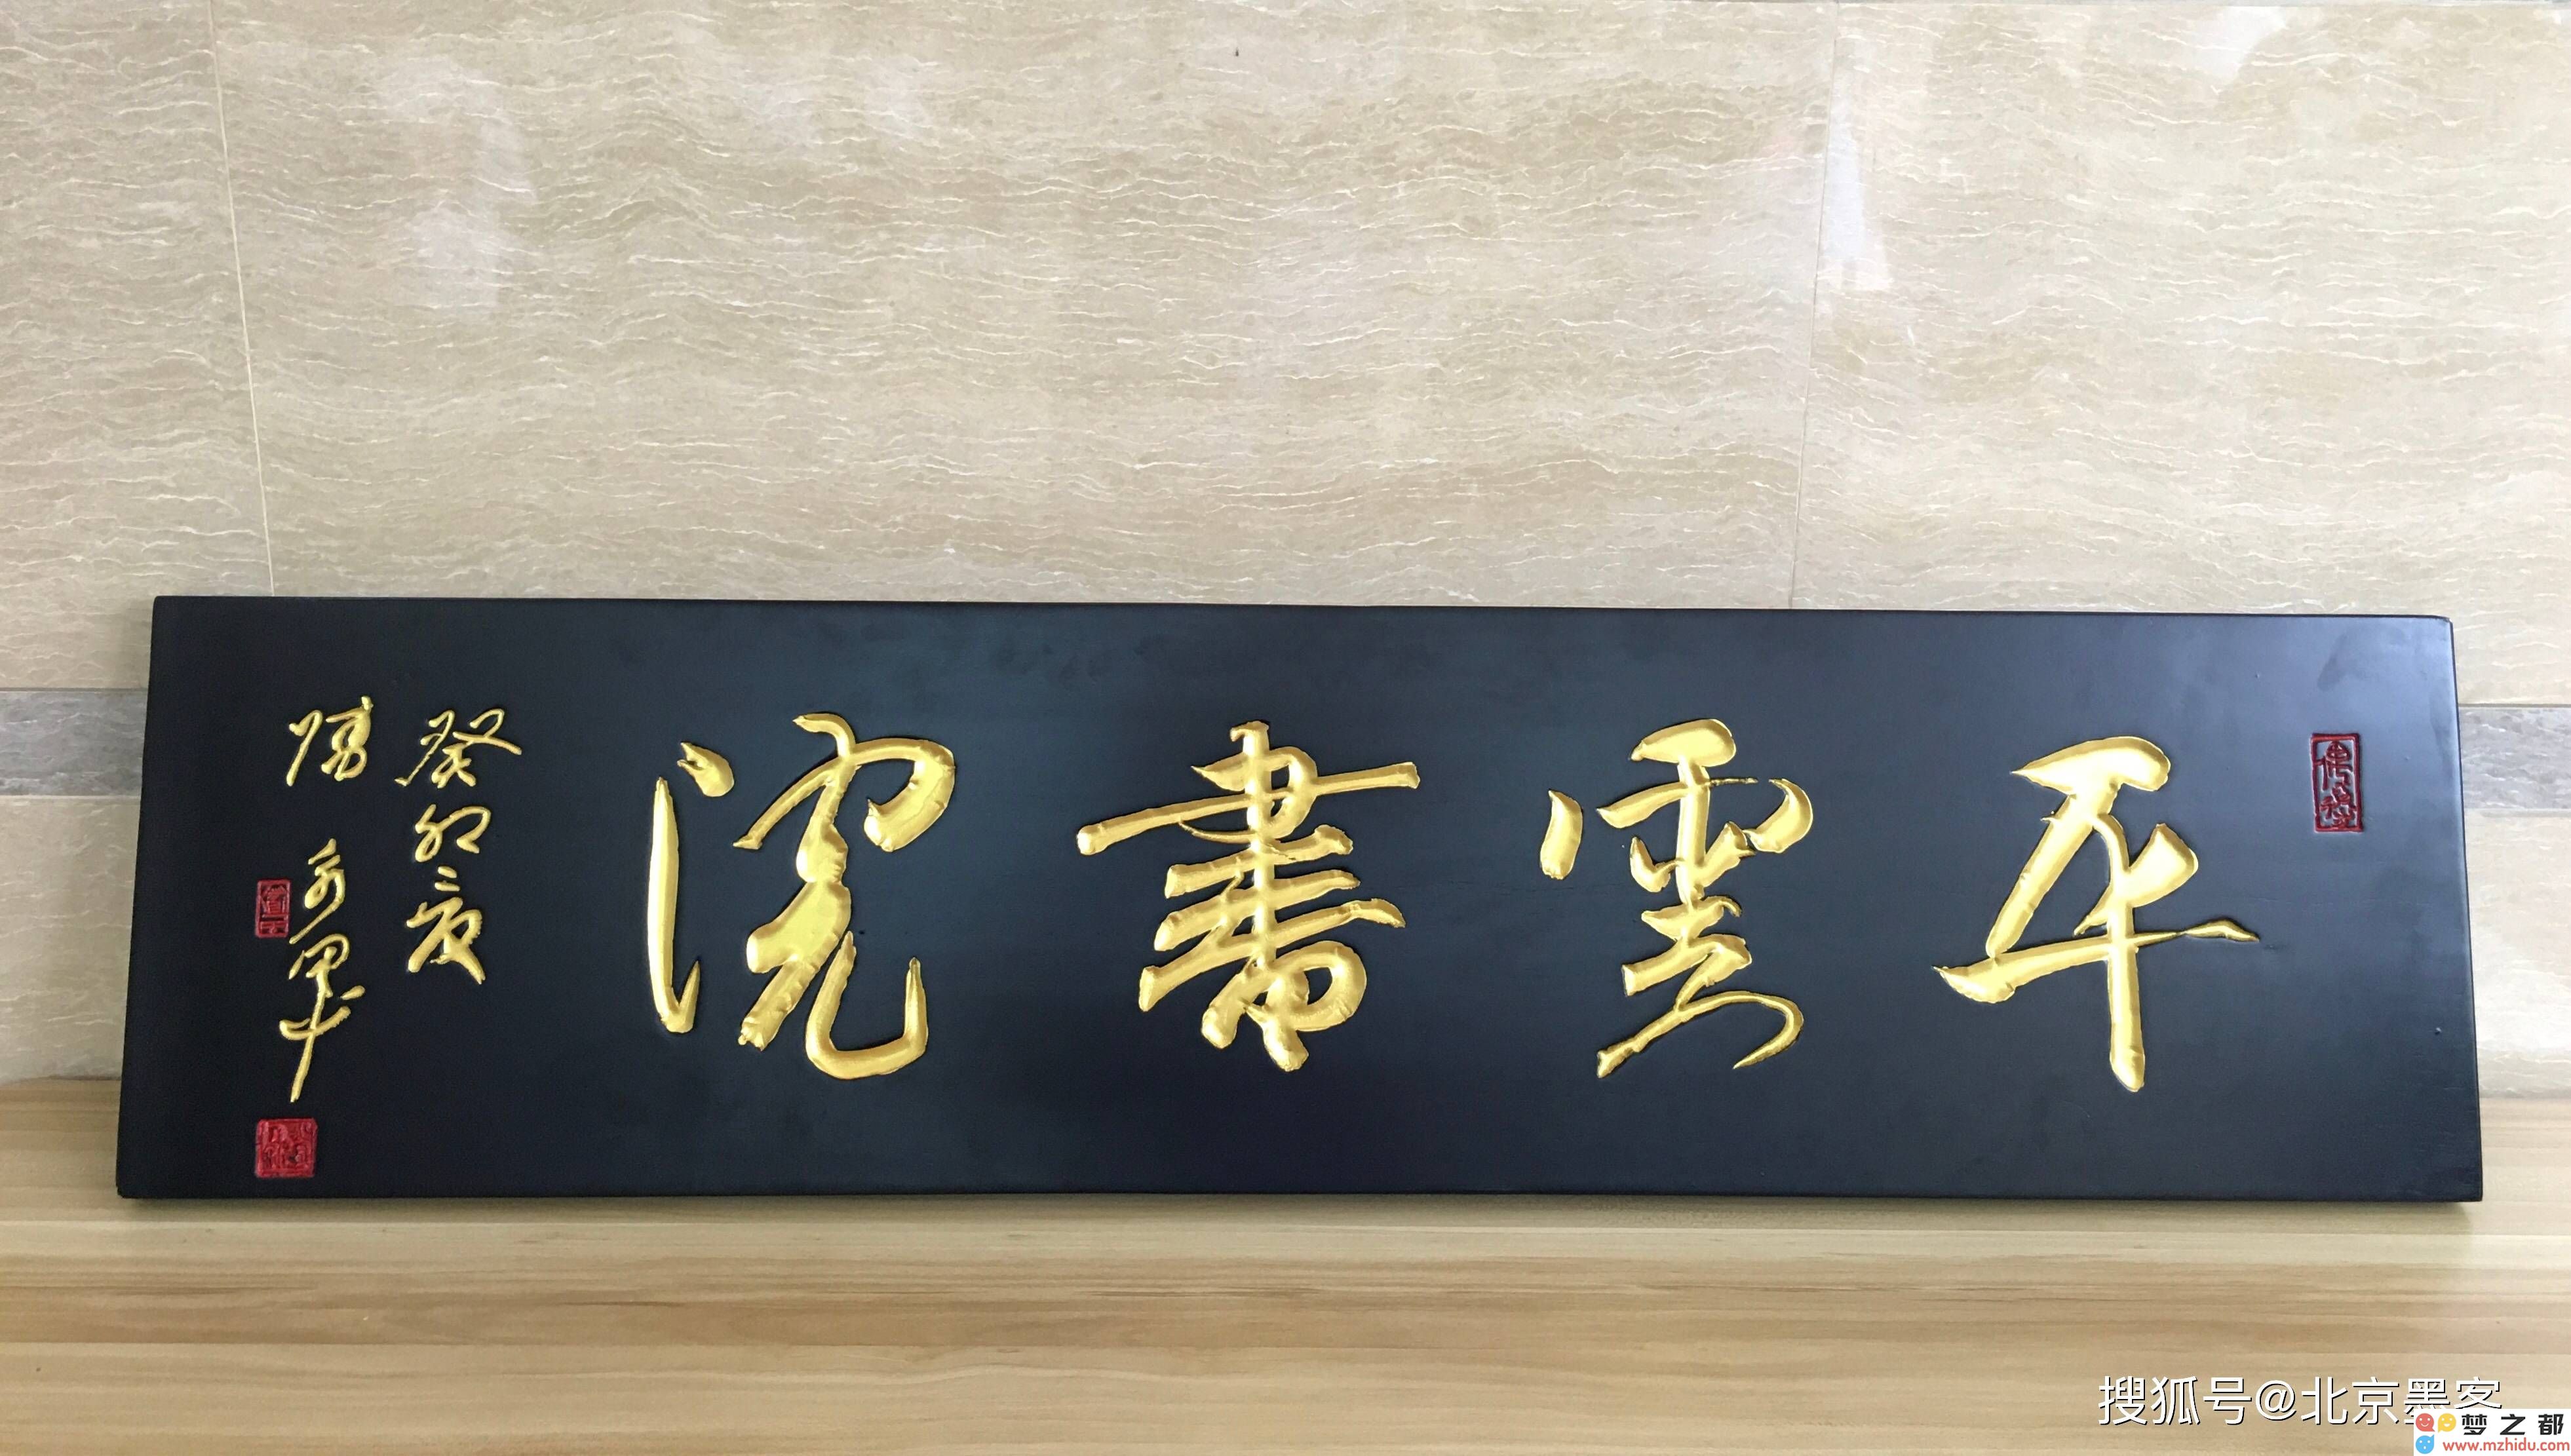 平雲書院
癸卯之夏
搜狐号@北京墨客
梦之都
www.mzhidu.com